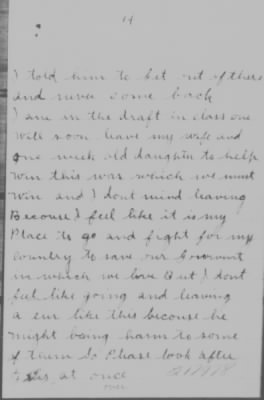 14
I told him to get out of there
and never come back
I am in the draft in class one
will soon leave my wife and
one week old daughter to help
win this war which we must
win and I dont mind leaving
Because I feel like it is my
Place to go and fight for my
country to save our Goverment
in which we love But I dont
feel like going and leaving
a cur like this because he
might bring harm to some
of them So Please look after
this at once
over